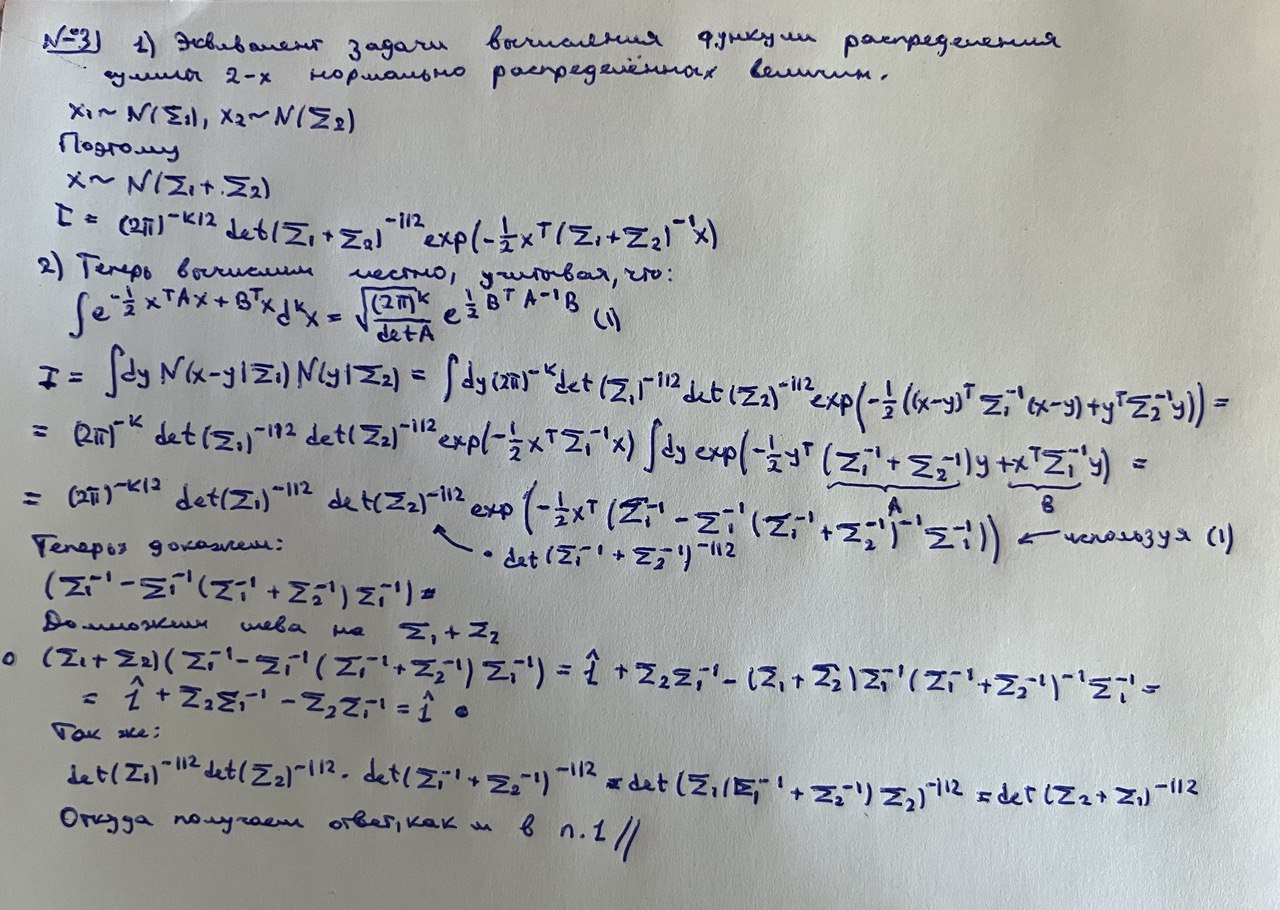 №3) 1) Эквивалент задачи вычисления функции распределения
суммы 2-х нормально распределённых величин.
x₁ ~ N(Σ₁), x₂ ~ N(Σ₂)
Поэтому
x ~ N(Σ₁ + Σ₂)
I = (2π)^{-k/2} det(Σ₁ + Σ₂)^{-1/2} exp(-½ xᵀ(Σ₁ + Σ₂)^{-1} x)
2) Теперь вычислим честно, учитывая, что:
∫ e^{-½ xᵀAx + Bᵀx} dᵏx = √((2π)ᵏ / det A) e^{½ Bᵀ A^{-1} B} (1)
I = ∫dy N(x-y|Σ₁) N(y|Σ₂) = ∫dy (2π)^{-k} det(Σ₁)^{-1/2} det(Σ₂)^{-1/2} exp(-½((x-y)ᵀ Σ₁^{-1} (x-y) + yᵀ Σ₂^{-1} y)) =
= (2π)^{-k} det(Σ₁)^{-1/2} det(Σ₂)^{-1/2} exp(-½ xᵀ Σ₁^{-1} x) ∫dy exp(-½ yᵀ (Σ₁^{-1} + Σ₂^{-1}) y + xᵀ Σ₁^{-1} y) =
A B
= (2π)^{-k/2} det(Σ₁)^{-1/2} det(Σ₂)^{-1/2} exp(-½ xᵀ (Σ₁^{-1} - Σ₁^{-1} (Σ₁^{-1} + Σ₂^{-1})^{-1} Σ₁^{-1})) ← используя (1)
· det(Σ₁^{-1} + Σ₂^{-1})^{-1/2}
Теперь докажем:
(Σ₁^{-1} - Σ₁^{-1} (Σ₁^{-1} + Σ₂^{-1}) Σ₁^{-1}) =
Домножим слева на Σ₁ + Σ₂
∘ (Σ₁ + Σ₂)(Σ₁^{-1} - Σ₁^{-1} (Σ₁^{-1} + Σ₂^{-1}) Σ₁^{-1}) = 1̂ + Σ₂Σ₁^{-1} - (Σ₁ + Σ₂)Σ₁^{-1} (Σ₁^{-1} + Σ₂^{-1})^{-1} Σ₁^{-1} =
= 1̂ + Σ₂Σ₁^{-1} - Σ₂Σ₁^{-1} = 1̂ •
Так же:
det(Σ₁)^{-1/2} det(Σ₂)^{-1/2} · det(Σ₁^{-1} + Σ₂^{-1})^{-1/2} = det(Σ₁(Σ₁^{-1} + Σ₂^{-1}) Σ₂)^{-1/2} = det(Σ₂ + Σ₁)^{-1/2}
Откуда получаем ответ, как и в п.1 //